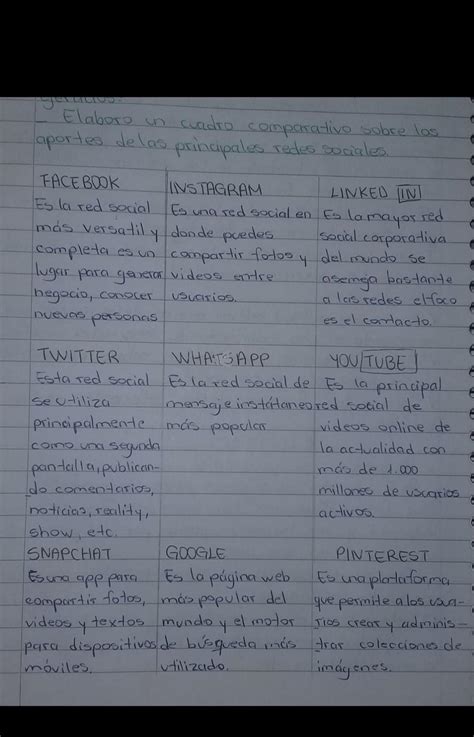 _ Elaboro un cuadro comparativo sobre los
aportes de las principales redes sociales.
FACEBOOK
Es la red social
más versatil y
completa es un
lugar para generar
negocio, conocer
nuevas personas
INSTAGRAM
Es una red social en
donde puedes
compartir fotos y
videos entre
usuarios.
LINKED IN
Es la mayor red
social corporativa
del mundo se
asemeja bastante
a las redes el foco
es el contacto.
TWITTER
Esta red social
se utiliza
principalmente
como una segunda
pantalla, publican-
do comentarios,
noticias, reality,
show, etc.
WHATSAPP
Es la red social de
mensaje instátaneo
más popular
YOUTUBE
Es la principal
red social de
videos online de
la actualidad con
más de 1.000
millones de usuarios
activos.
SNAPCHAT
Es una app para
compartir fotos,
videos y textos
para dispositivos
móviles.
GOOGLE
Es la página web
más popular del
mundo y el motor
de búsqueda más
utilizado.
PINTEREST
Es una plataforma
que permite a los usua-
rios crear y adminis-
trar colecciones de
imágenes.